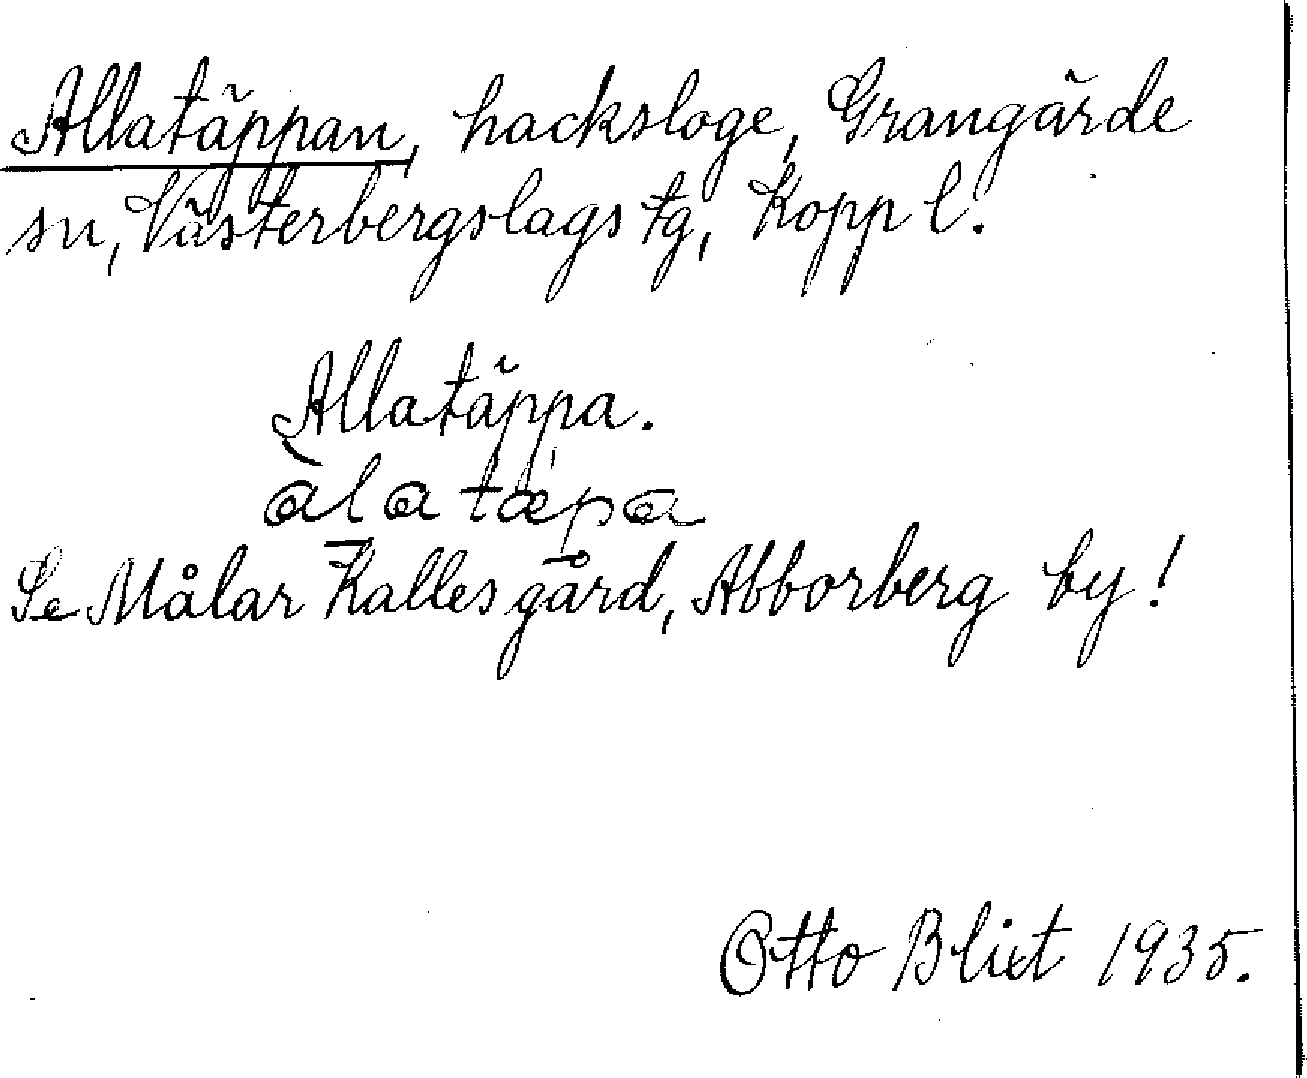 Allatäppan, hacksloge, Grangärde
sn, Västerbergslags tg, Kopp l.
Allatäppa.
àla tæpa
Se Målar Kalles gård, Abborberg by!
Otto Blixt 1935.